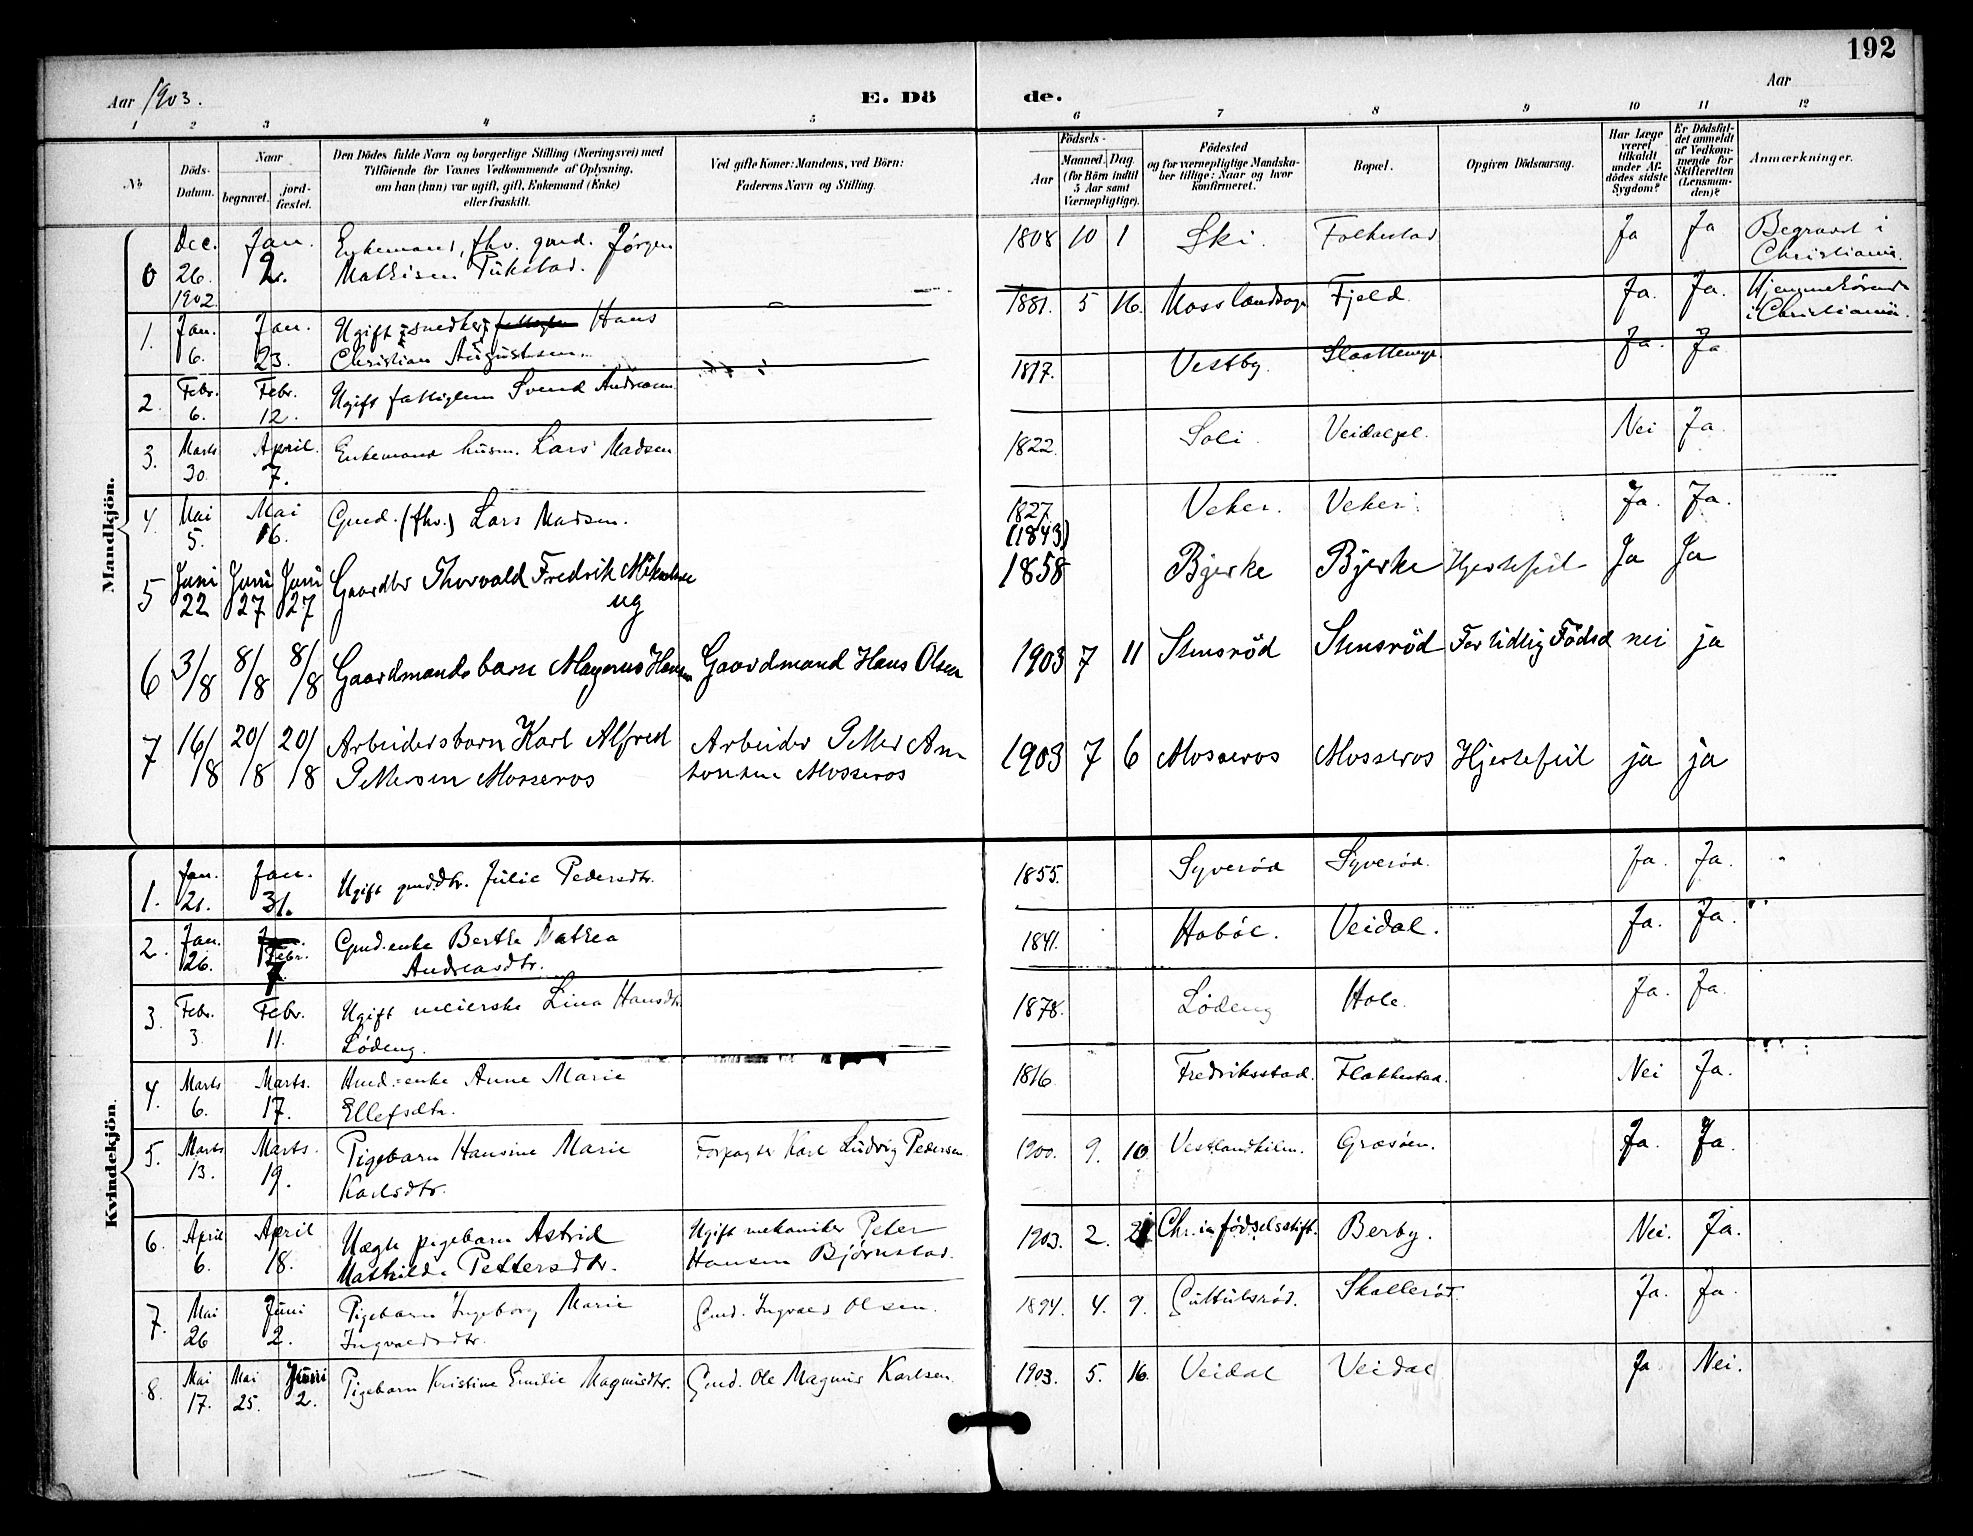 192
Aar 1903.
E. Dö
de.
Aar
1 2 3 4 5 6 7 8 9 10 11 12
No
Döds-Datum.
Naar
begravet.
jord-fæstet.
Den Dödes fulde Navn og borgerlige Stilling (Næringsvei) med
Tilföiende for Voxnes Vedkommende af Oplysning,
om han (hun) var ugift, gift, Enkemand (Enke)
eller fraskilt.
Ved gifte Koner: Mandens, ved Börn:
Faderens Navn og Stilling.
Födsels-
Aar
Maaned. Dag.
(for Börn indtil
5 Aar samt
Værnepligtige).
Födested
og for værnepligtige Mandska-
ber tillige: Naar og hvor
konfirmeret.
Bopæl.
Opgiven Dödsaarsag.
Har Læge
været
tilkaldt
under Af-
dödes sidste
Sygdom?
Er Dödsfal-
det anmeldt
af Vedkom-
mende for
Skifteretten
(Lensman-
den)?
Anmærkninger.
Mandkjön.
0 Dec. 26. 1902 Jan. 2. Enkemand, fhv. gmd. Jørgen
Mathisen 1808 10 1 Ski. Folkestad Ja Ja Begravet i
Christiania.
1. Jan. 6. Jan. 23. Ugift snedker Hans
Christian Augustsen. 1881. 5 16. Moss landsogn Fjeld. Ja. Ja. Hjemmehörende
i Christiania.
2. Febr. 6. Febr. 12. Ugift fattiglem Svend Andreasen 1817. Vestby. Ja. Ja
3. Marts 30. April. 7. Enkemand husm. Lars Madsen 1822. Soli. Veidalspl. Nei Ja.
4. Mai 5. Mai 16. Gmd. (fhv.) Lars Madsen. 1827. Veker. Veker. Ja. Ja.
5 Juni 22 Juni 27 Juni 27 Gaardbr Thorvald Fredrik
ug (1843) 1858 Bjerke Bjerke Hjertefeil Ja Ja
6 3/8 8/8 8/8 Gaardmandsbarn Magnus Hansen Gaardmand Hans Olsen 1903 7 11 Stensröd Stensröd For tidlig Födsel nei ja
7 16/8 20/8 20/8 Arbeidersbarn Karl Alfred
Pettersen Mosseros Arbeider Petter An
tonsen Mosseros 1903 7 6 Mosseros Mosseros Hjertefeil ja ja
Kvindekjön.
1. Jan. 21. Jan. 31. Ugift gmd.dtr. Julie Pedersdtr. 1855. Syverød Syverød. Ja. Ja.
2. Jan. 26. Febr. 7. Gmd.enke Berthe Mathea
Andreasdtr. 1841. Hobøl. Veidal. Ja. Ja.
3. Febr. 3. Febr. 11. Ugift meierske Lina Hansdtr.
Lødeng. 1878. Lødeng Hole. Ja. Ja.
4. Marts 6. Marts. 17. Hmd.-enke Anne Marie
Ellefsdtr. 1816 Fredriksstad. Flakkestad. Nei Ja.
5. Marts 13. Marts. 19. Pigebarn Hansine Marie
Karlsdtr. Forpagter Karl Ludvig Pedersen. 1900. 9. 10 Græsøen. Ja. Ja.
6. April 6. April 18. Uægte pigebarn Astrid
Mathilde Pettersdtr. Ugift mekaniker Peter
Hansen Bjørnstad. 1903. 2. Chr.ia fødselsstift. Berby. Nei. Ja.
7. Mai 26 Juni 2. Pigebarn Ingeborg Marie
Ingvaldsdtr. Gmd. Ingvald Olsen. 1894. 4. 9. Guttulsrød. Skallerød. Ja. Ja.
8. Mai 17. Mai 25. Juni 2. Pigebarn Kristine Emilie Magnusdtr. Gmd. Ole Magnus Karlsen. 1903. 5. 16. Veidal Veidal Ja. Nei.